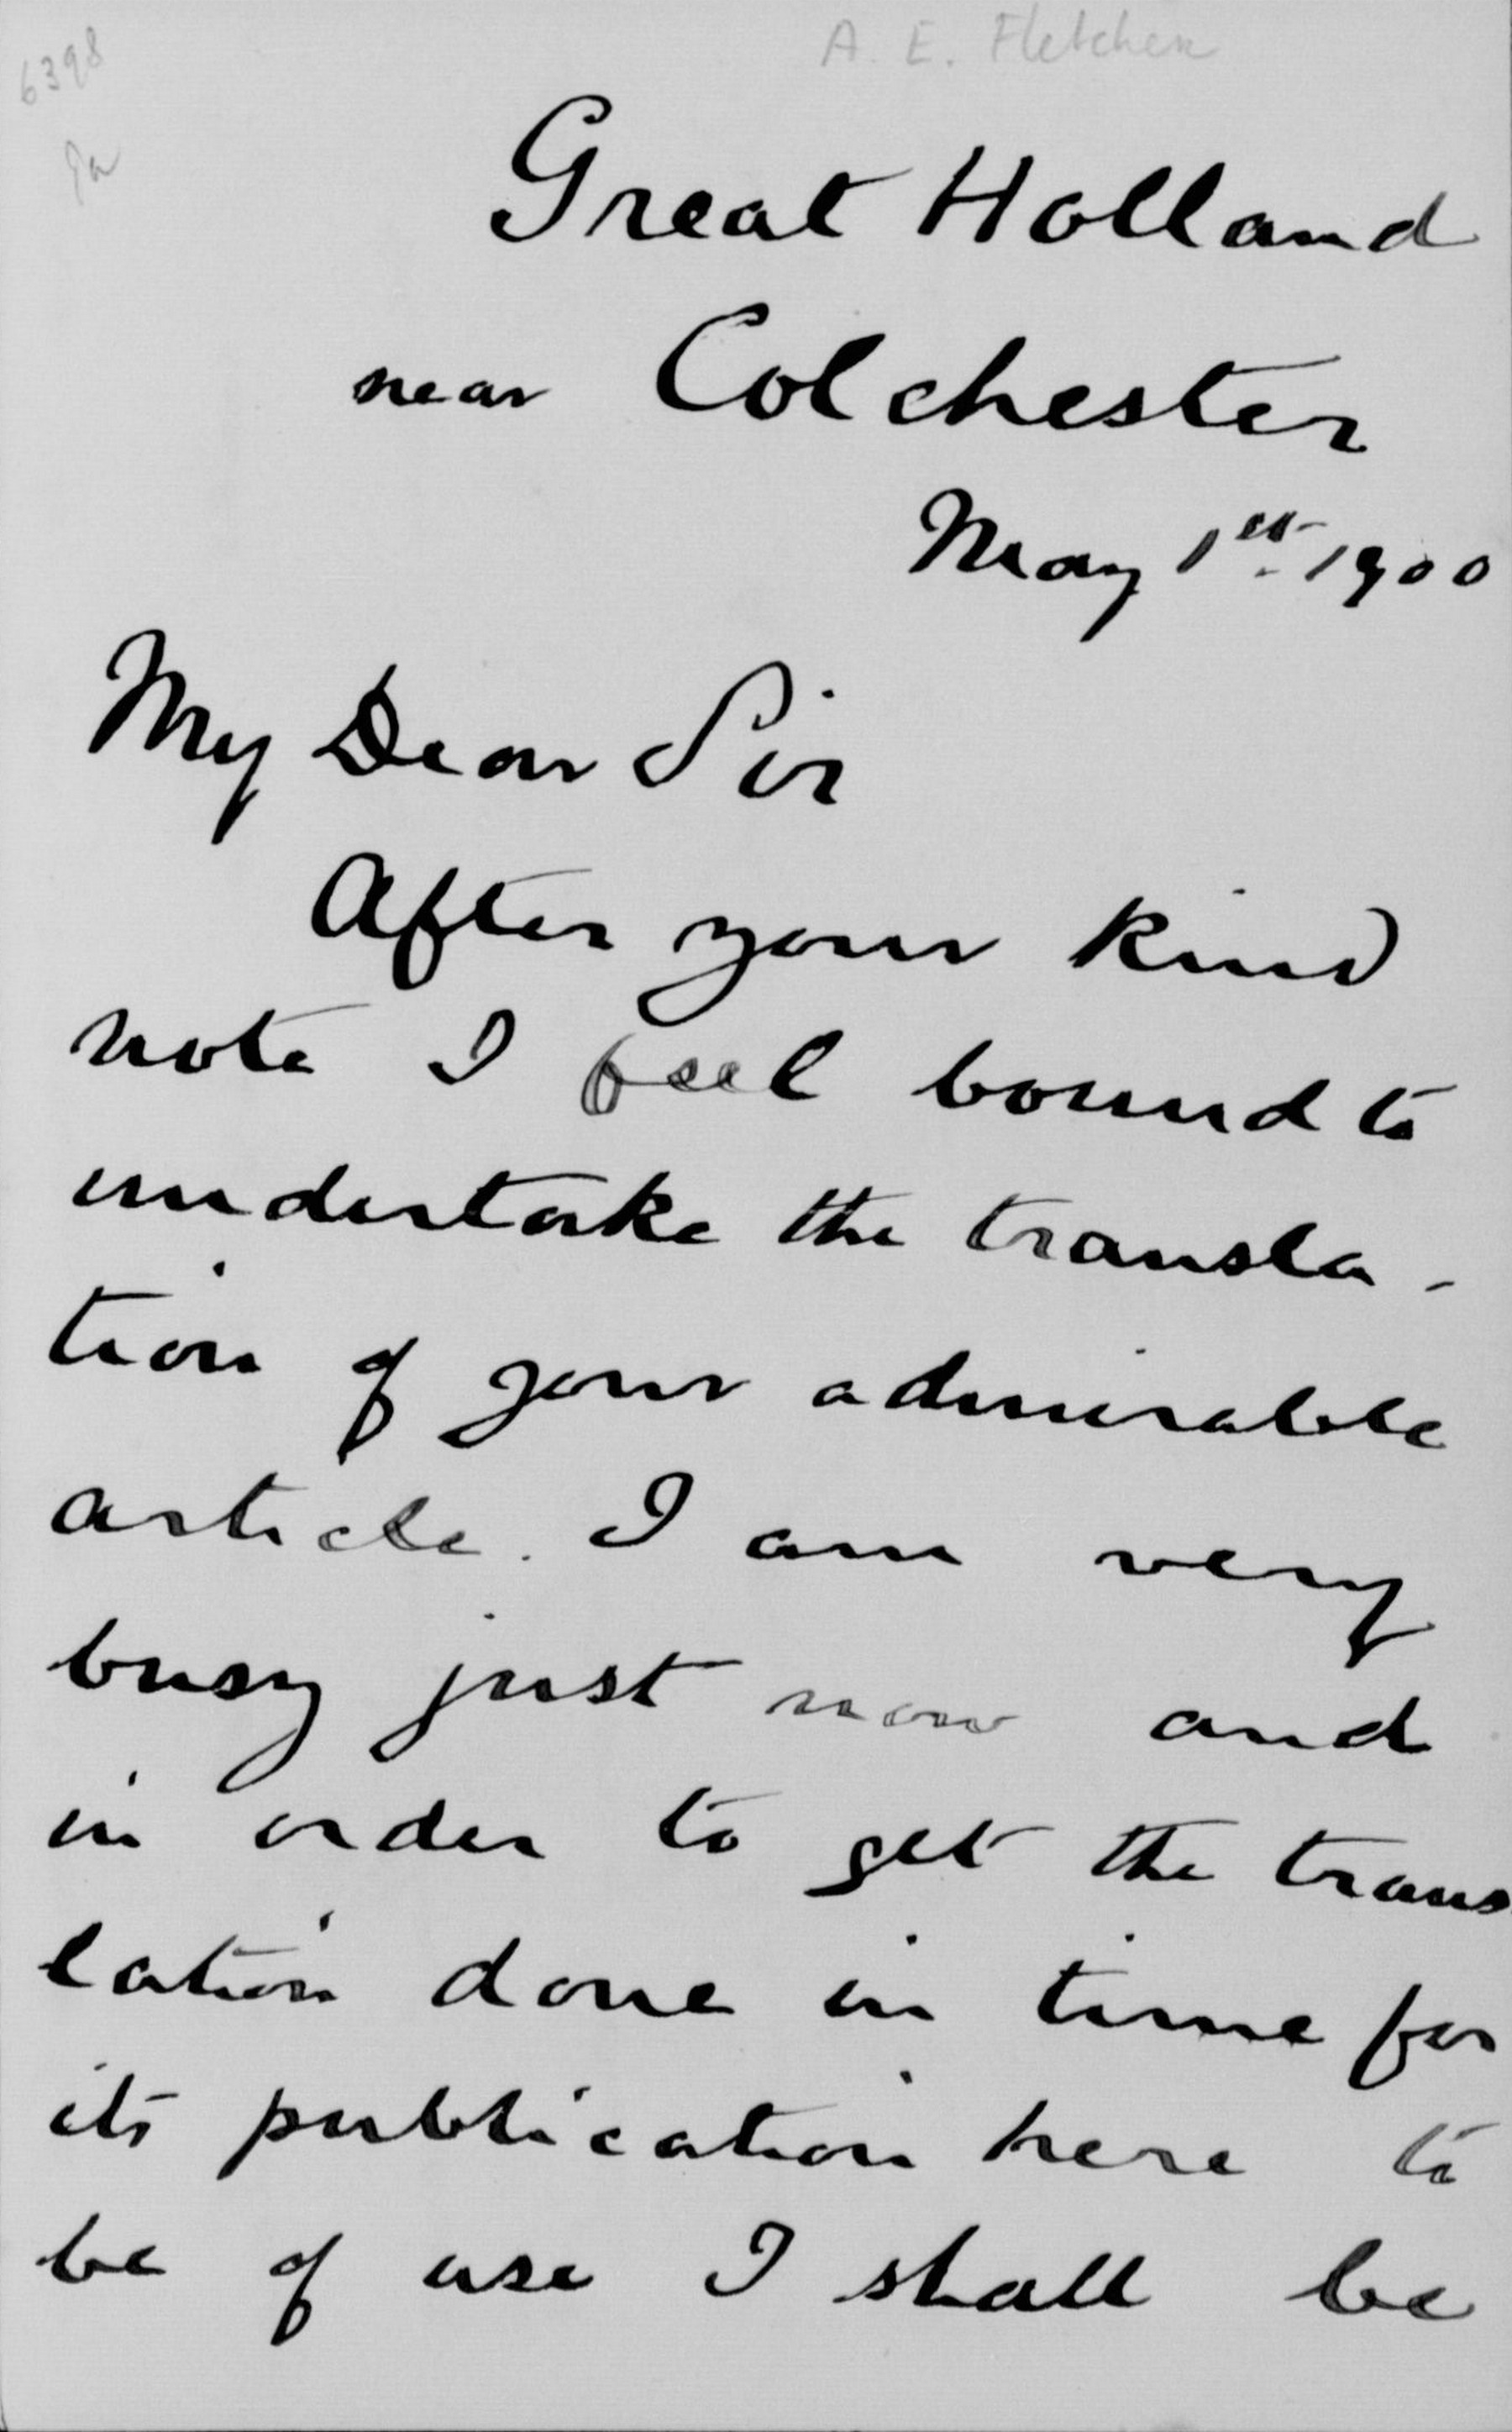 6398
A. E. Fletcher
Great Holland
near Colchester
May 1st. 1900
My Dear Sir
After your kind
note I feel bound to
undertake the transla-
tion of your admirable
article. I am very
busy just now and
in order to get the trans
lation done in time for
its publication here to
be of use I shall be